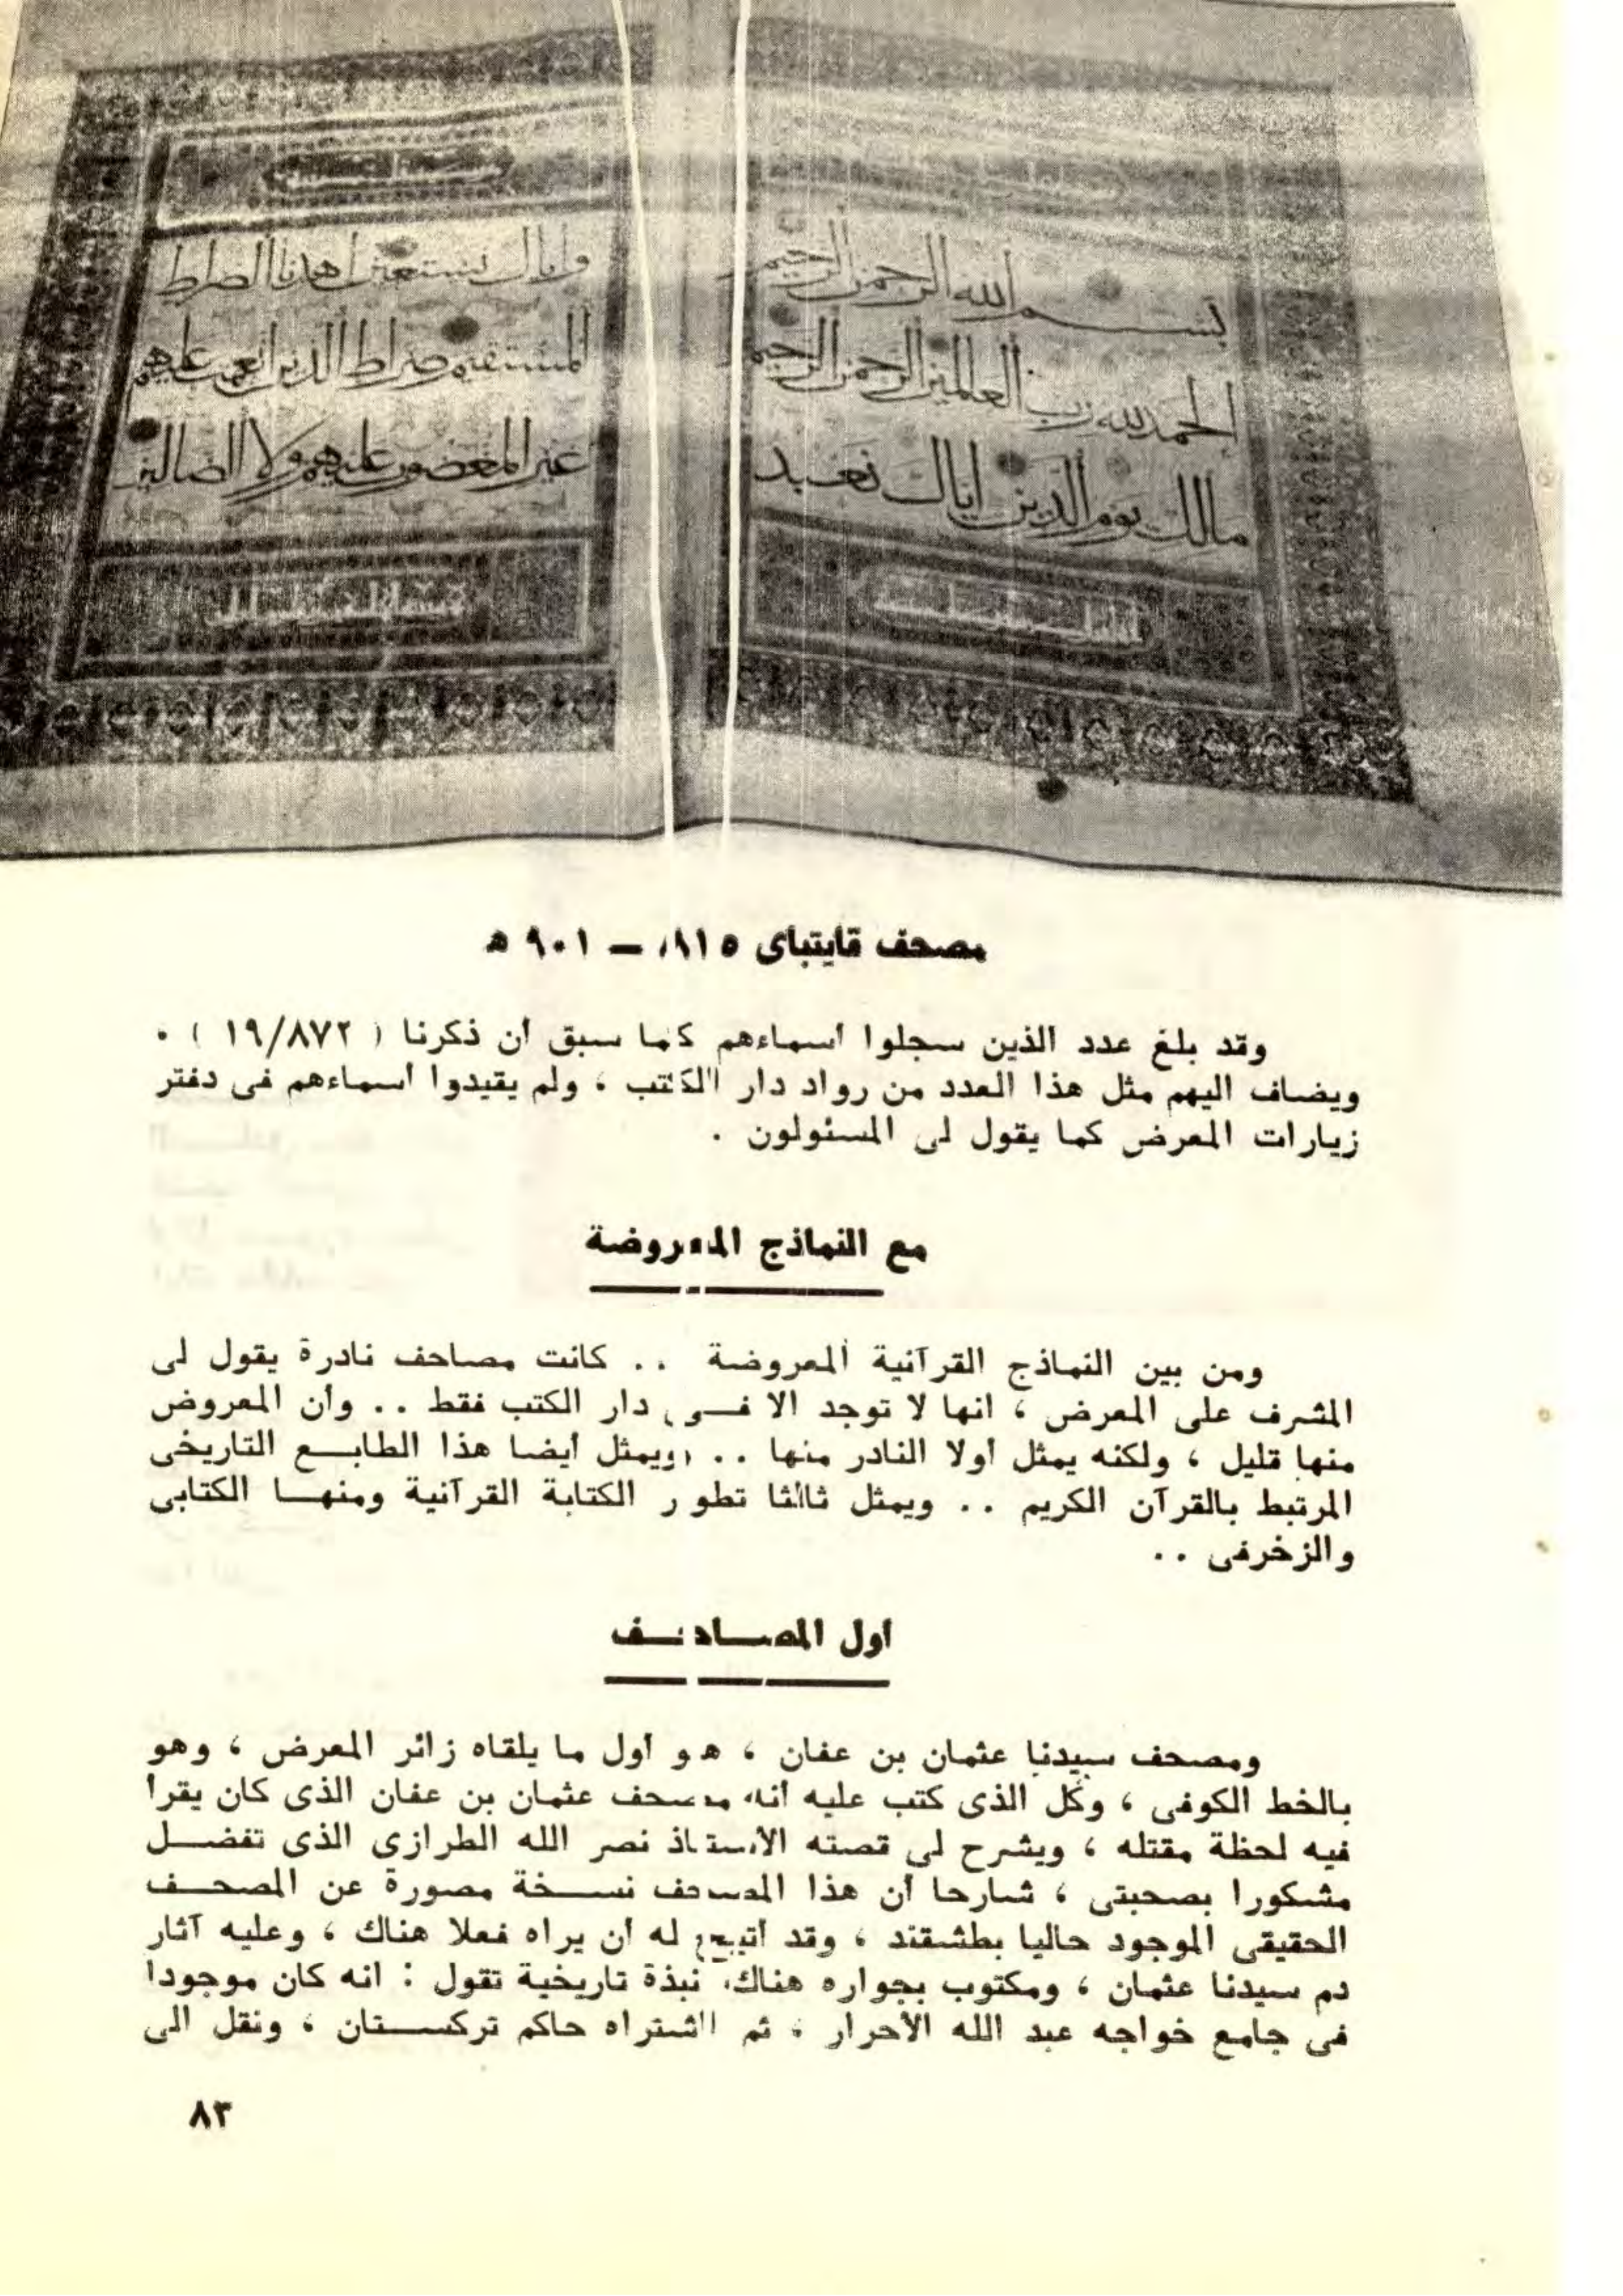 بسم الله الرحمن الرحيم
الحمد لله رب العالمين الرحمن الرحيم
مالك يوم الدين اياك نعبد
واياك نستعين اهدنا الصراط
المستقيم صراط الذين انعمت عليهم
غير المغضوب عليهم ولا الضالين
مصحف قايتباى ٨١٥ — ٩٠١ هـ
وقد بلغ عدد الذين سجلوا أسماءهم كما سبق أن ذكرنا ( ١٩/٨٧٢ ) .
ويضاف اليهم مثل هذا العدد من رواد دار الكتب ، ولم يقيدوا أسماءهم فى دفتر
زيارات المعرض كما يقول لى المسئولون .
مع النماذج المعروضة
ومن بين النماذج القرآنية المعروضة .. كانت مصاحف نادرة يقول لى
المشرف على المعرض ، انها لا توجد الا فــى دار الكتب فقط .. وأن المعروض
منها قليل ، ولكنه يمثل أولا النادر منها .. ويمثل أيضا هذا الطابــع التاريخى
المرتبط بالقرآن الكريم .. ويمثل ثالثا تطور الكتابة القرآنية ومنهــا الكتابى
والزخرفى ..
أول المصــاحــف
ومصحف سيدنا عثمان بن عفان ، هو أول ما يلقاه زائر المعرض ، وهو
بالخط الكوفى ، وكل الذى كتب عليه أنه مصحف عثمان بن عفان الذى كان يقرأ
فيه لحظة مقتله ، ويشرح لى قصته الأستاذ نصر الله الطرازى الذى تفضــل
مشكورا بصحبتى ، شارحا أن هذا المصحف نســخة مصورة عن المصحــف
الحقيقى الموجود حاليا بطشقند ، وقد أتيح له أن يراه فعلا هناك ، وعليه آثار
دم سيدنا عثمان ، ومكتوب بجواره هناك نبذة تاريخية تقول : انه كان موجودا
فى جامع خواجه عبد الله الأحرار ، ثم اشتراه حاكم تركســتان ، ونقل الى
٨٣